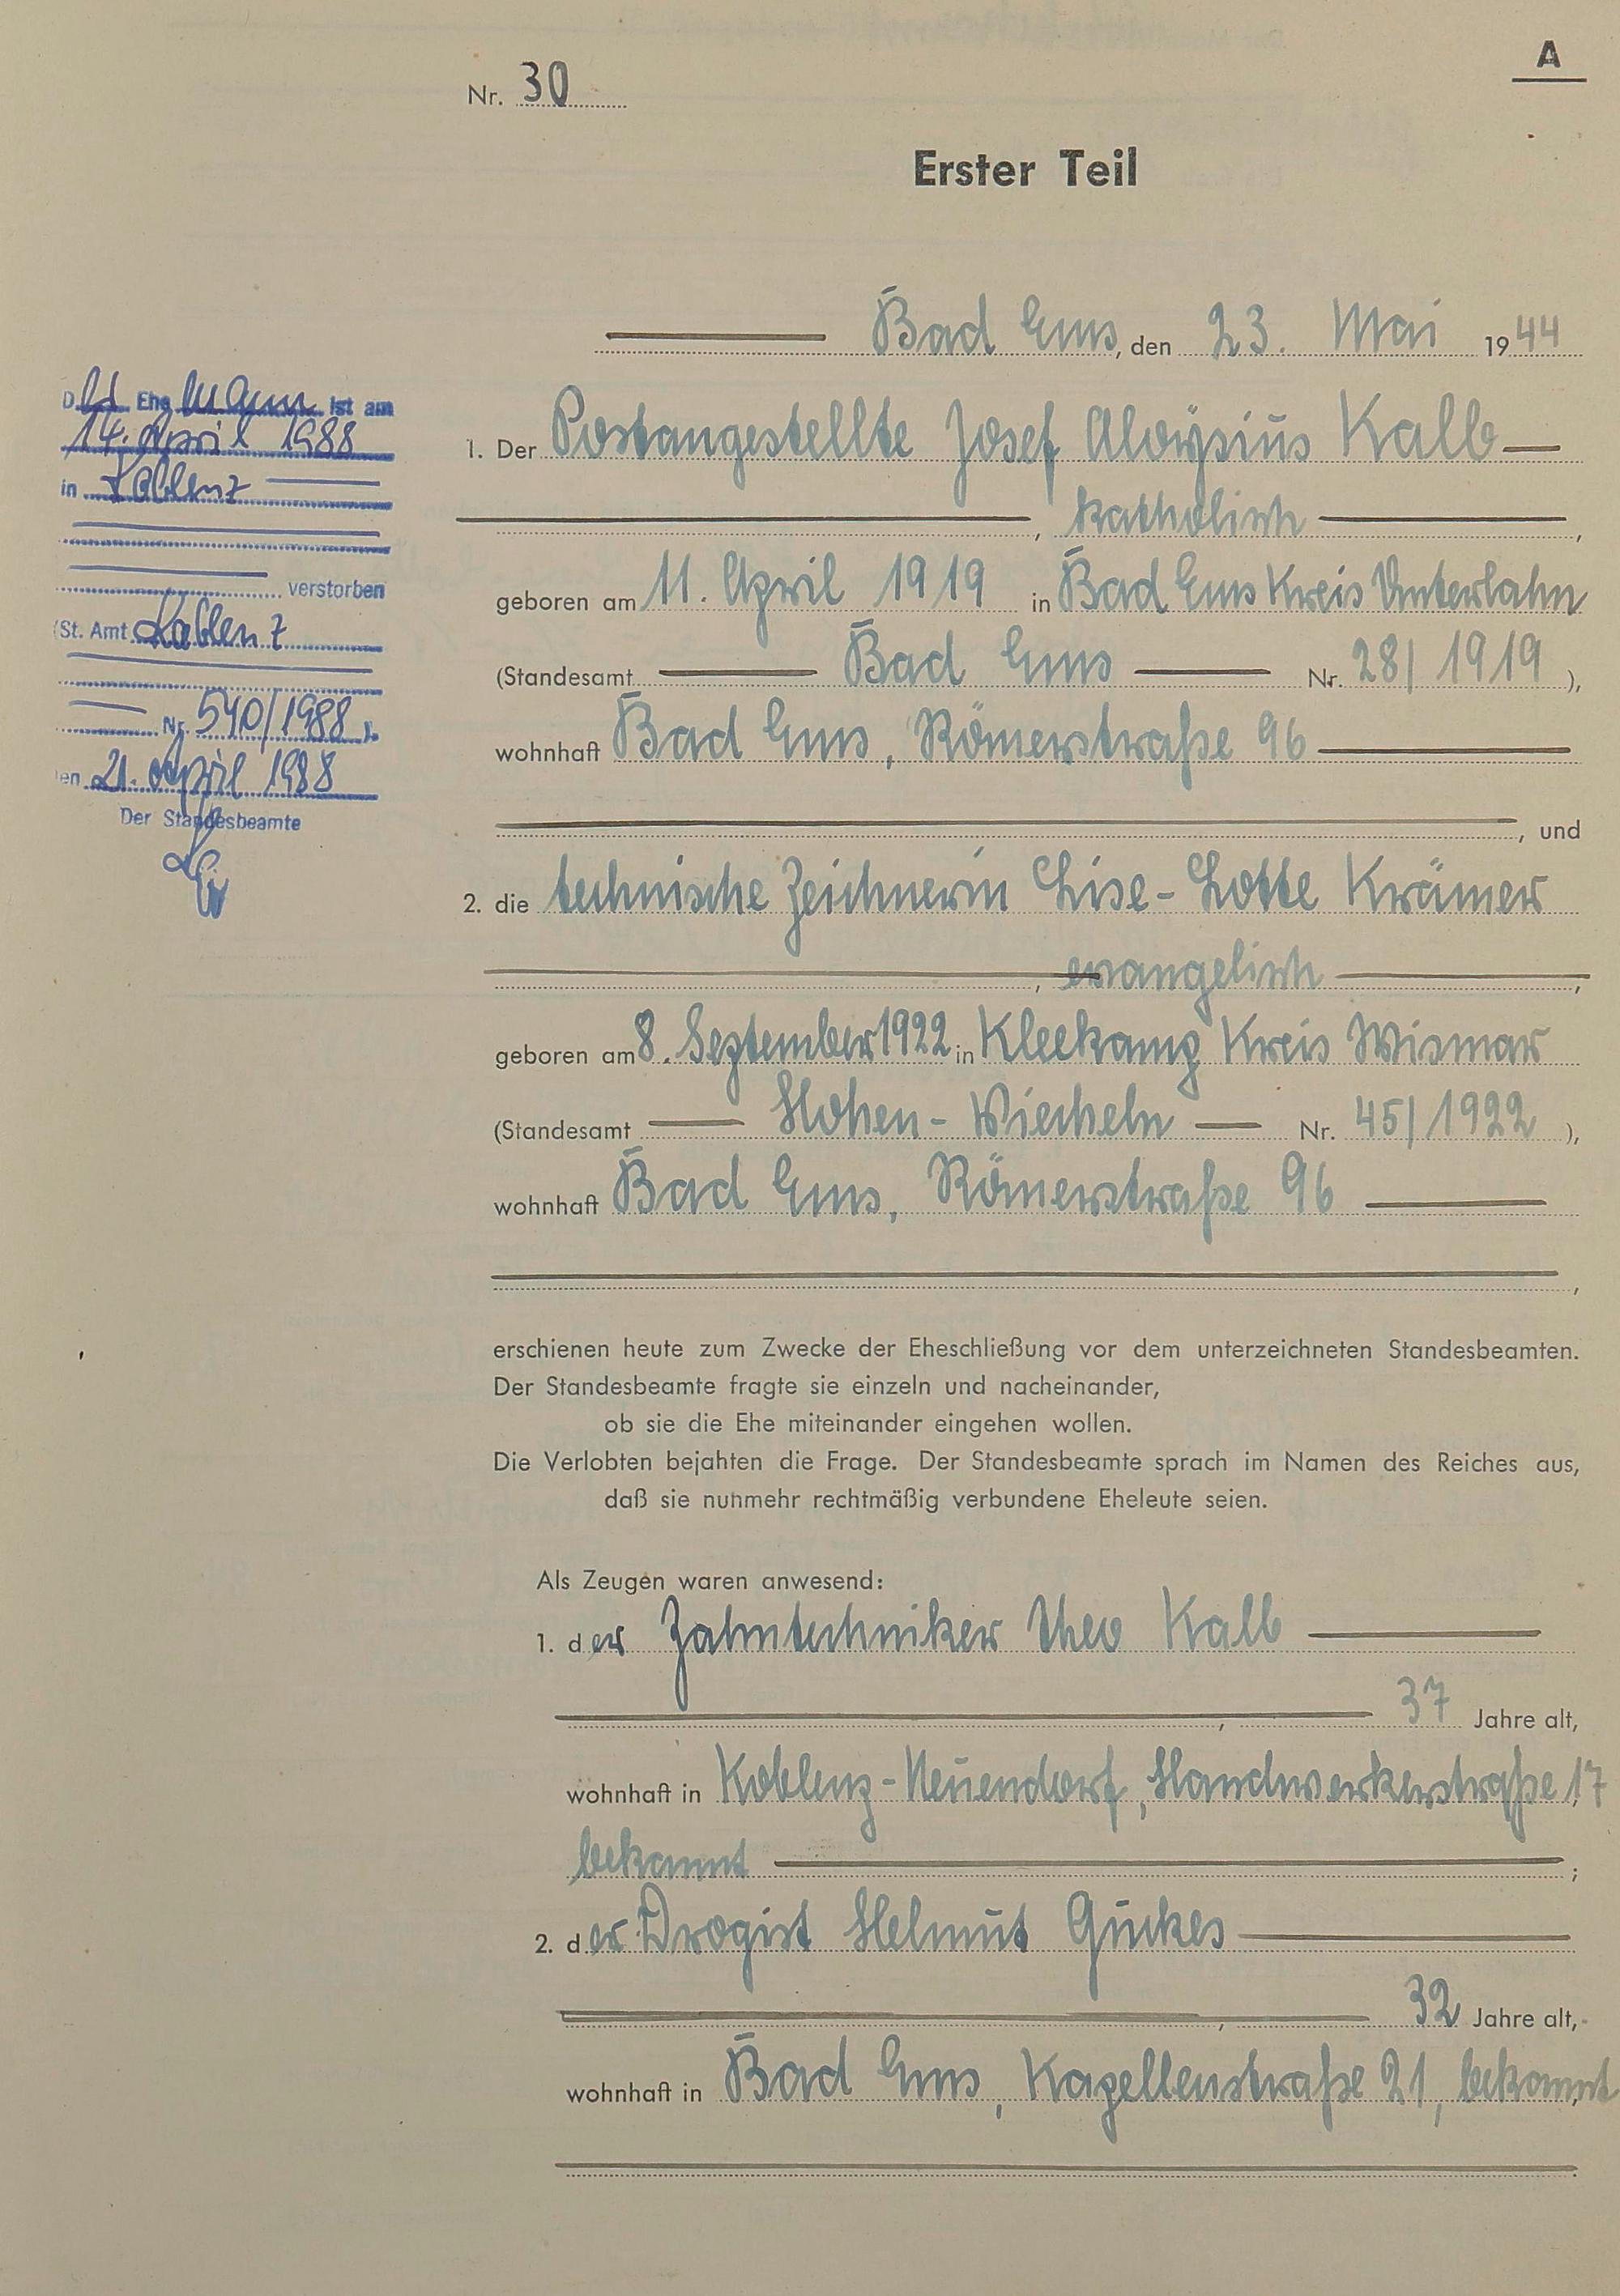 A
Nr. 30
Erster Teil
Bad Ems, den 23. Mai 1944
Der Ehemann ist am
14. April 1988
in Koblenz
verstorben
(St. Amt Koblenz
Nr. 540/1988).
en 21. April 1988
Der Standesbeamte
1. Der Postangestellte Josef Aloysius Kalb
, katholisch ,
geboren am 11. April 1919 in Bad Ems Kreis Unterlahn
(Standesamt Bad Ems Nr. 28/1919 ),
wohnhaft Bad Ems, Römerstraße 96
, und
2. die technische Zeichnerin Lise-Lotte Krämer
, evangelisch ,
geboren am 8. September 1922 in Kleekamp Kreis Wismar
(Standesamt Hohen-Viecheln Nr. 45/1922 ),
wohnhaft Bad Ems, Römerstraße 96
,
erschienen heute zum Zwecke der Eheschließung vor dem unterzeichneten Standesbeamten.
Der Standesbeamte fragte sie einzeln und nacheinander,
ob sie die Ehe miteinander eingehen wollen.
Die Verlobten bejahten die Frage. Der Standesbeamte sprach im Namen des Reiches aus,
daß sie nunmehr rechtmäßig verbundene Eheleute seien.
Als Zeugen waren anwesend:
1. der Zahntechniker Theo Kalb
, 37 Jahre alt,
wohnhaft in Koblenz-Neuendorf, Handwerkerstraße 17,
bekannt ;
2. der Drogist Helmut Guckes
, 32 Jahre alt,
wohnhaft in Bad Ems, Kapellenstraße 21, bekannt
.